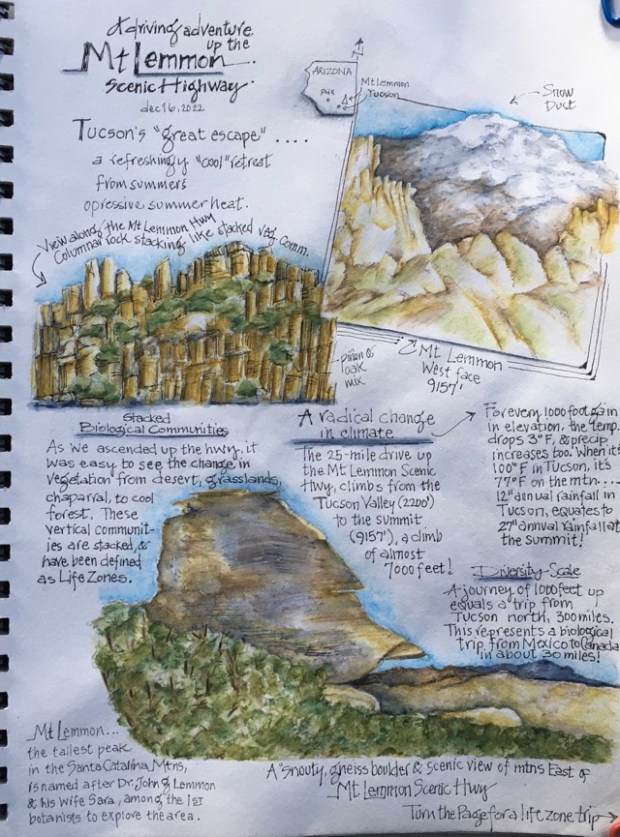 A driving adventure
up the
Mt Lemmon
Scenic Highway.
dec 16, 2022
ARIZONA
PHX
Mt Lemmon
Tucson
Snow
Dust
Tucson's "great escape" ....
a refreshingly "cool" retreat
from summers
opressive summer heat.
View along the Mt Lemmon Hwy
Columnar rock stacking like stacked veg. comm.
piñon &
oak
mix
Mt Lemmon
West face
9157'
Stacked
Biological Communities
As we ascended up the hwy, it
was easy to see the change in
vegetation from desert, grasslands,
chaparral, to cool
forest. These
vertical communit-
ies are stacked, &
have been defined
as Life Zones.
A radical change
in climate
The 25-mile drive up
the Mt Lemmon Scenic
Hwy, climbs from the
Tucson Valley (2200')
to the summit
(9157'), a climb
of almost
7000 feet!
For every 1000 foot gain
in elevation, the temp.
drops 3°F, & precip
increases too. When it's
100°F in Tucson, it's
77°F on the mtn....
12" annual rainfall in
Tucson, equates to
27" annual rainfall at
the summit!
Diversity-Scale
A journey of 1000 feet up
equals a trip from
Tucson north, 300 miles.
This represents a biological
trip from Mexico to Canada
in about 30 miles!
Mt Lemmon...
the tallest peak
in the Santa Catalina Mtns,
is named after Dr. John G Lemmon
& his wife Sara, among the 1st
botanists to explore the area.
A "snouty, gneiss boulder & scenic view of mtns East of
Mt Lemmon Scenic Hwy
Turn the Page for a life zone trip